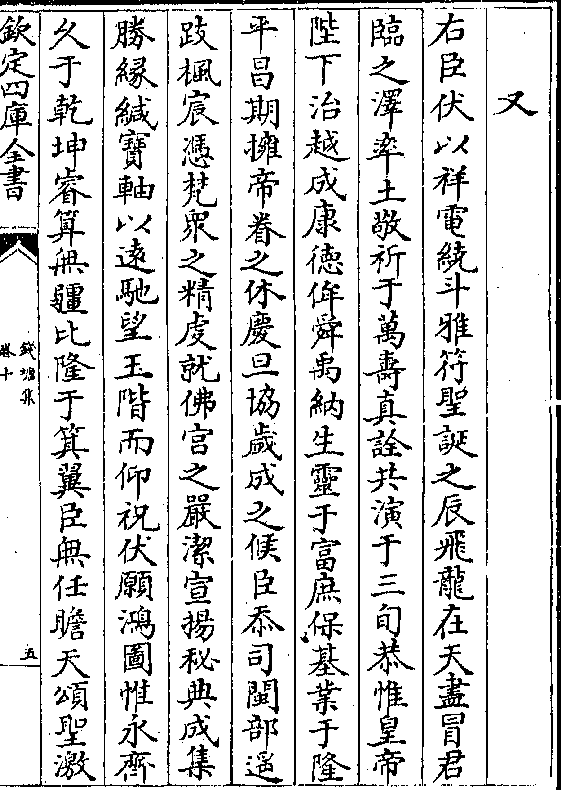 又
右臣伏以祥電繞斗雅符聖誕之辰飛龍在天盡冒君
臨之澤率土敬祈于萬壽真詮共演于三旬恭惟皇帝
陛下治越成康德侔舜禹納生靈于富庶保基業于隆
平昌期擁帝眷之休慶旦協歲成之候臣忝司閫部遥
跂楓宸憑梵衆之精䖍就佛宫之嚴潔宣揚秘典成集
勝縁緘寶軸以遠馳望玉階而仰祝伏願鴻圖惟永齊
久于乾坤睿算無疆比隆于箕翼臣無任瞻天頌聖激
欽定四庫全書
錢塘集
卷十
五